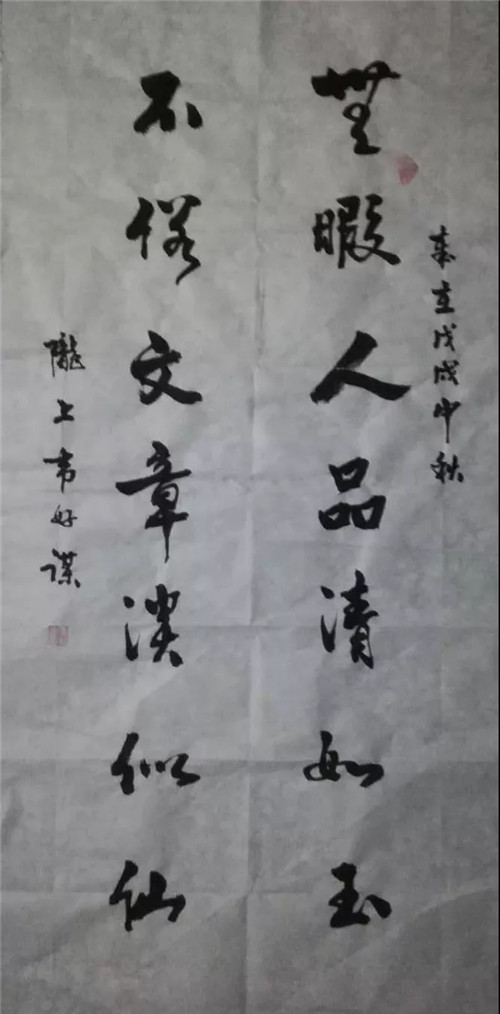 歲在戊戌中秋
無暇人品清如玉
不俗文章淡似仙
隴上韦好謀